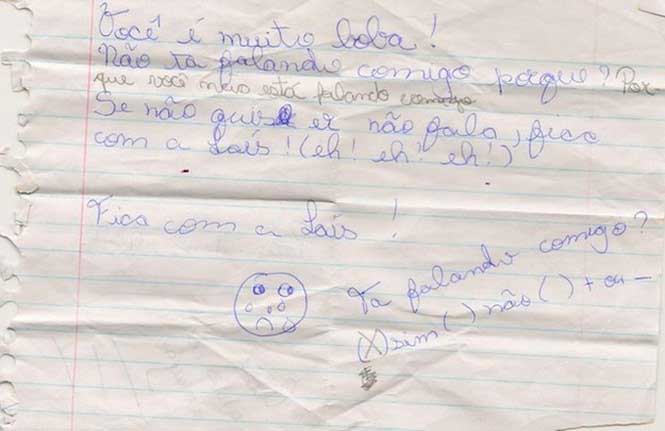 Você é muito boba!
Não ta falando comigo porque? Por-
que você não está falando comigo
Se não quiser não fala, fica
com a Laís! (eh! eh! eh!)
Fica com a Laís!
Ta falando comigo?
(X) sim ( ) não ( ) + ou -